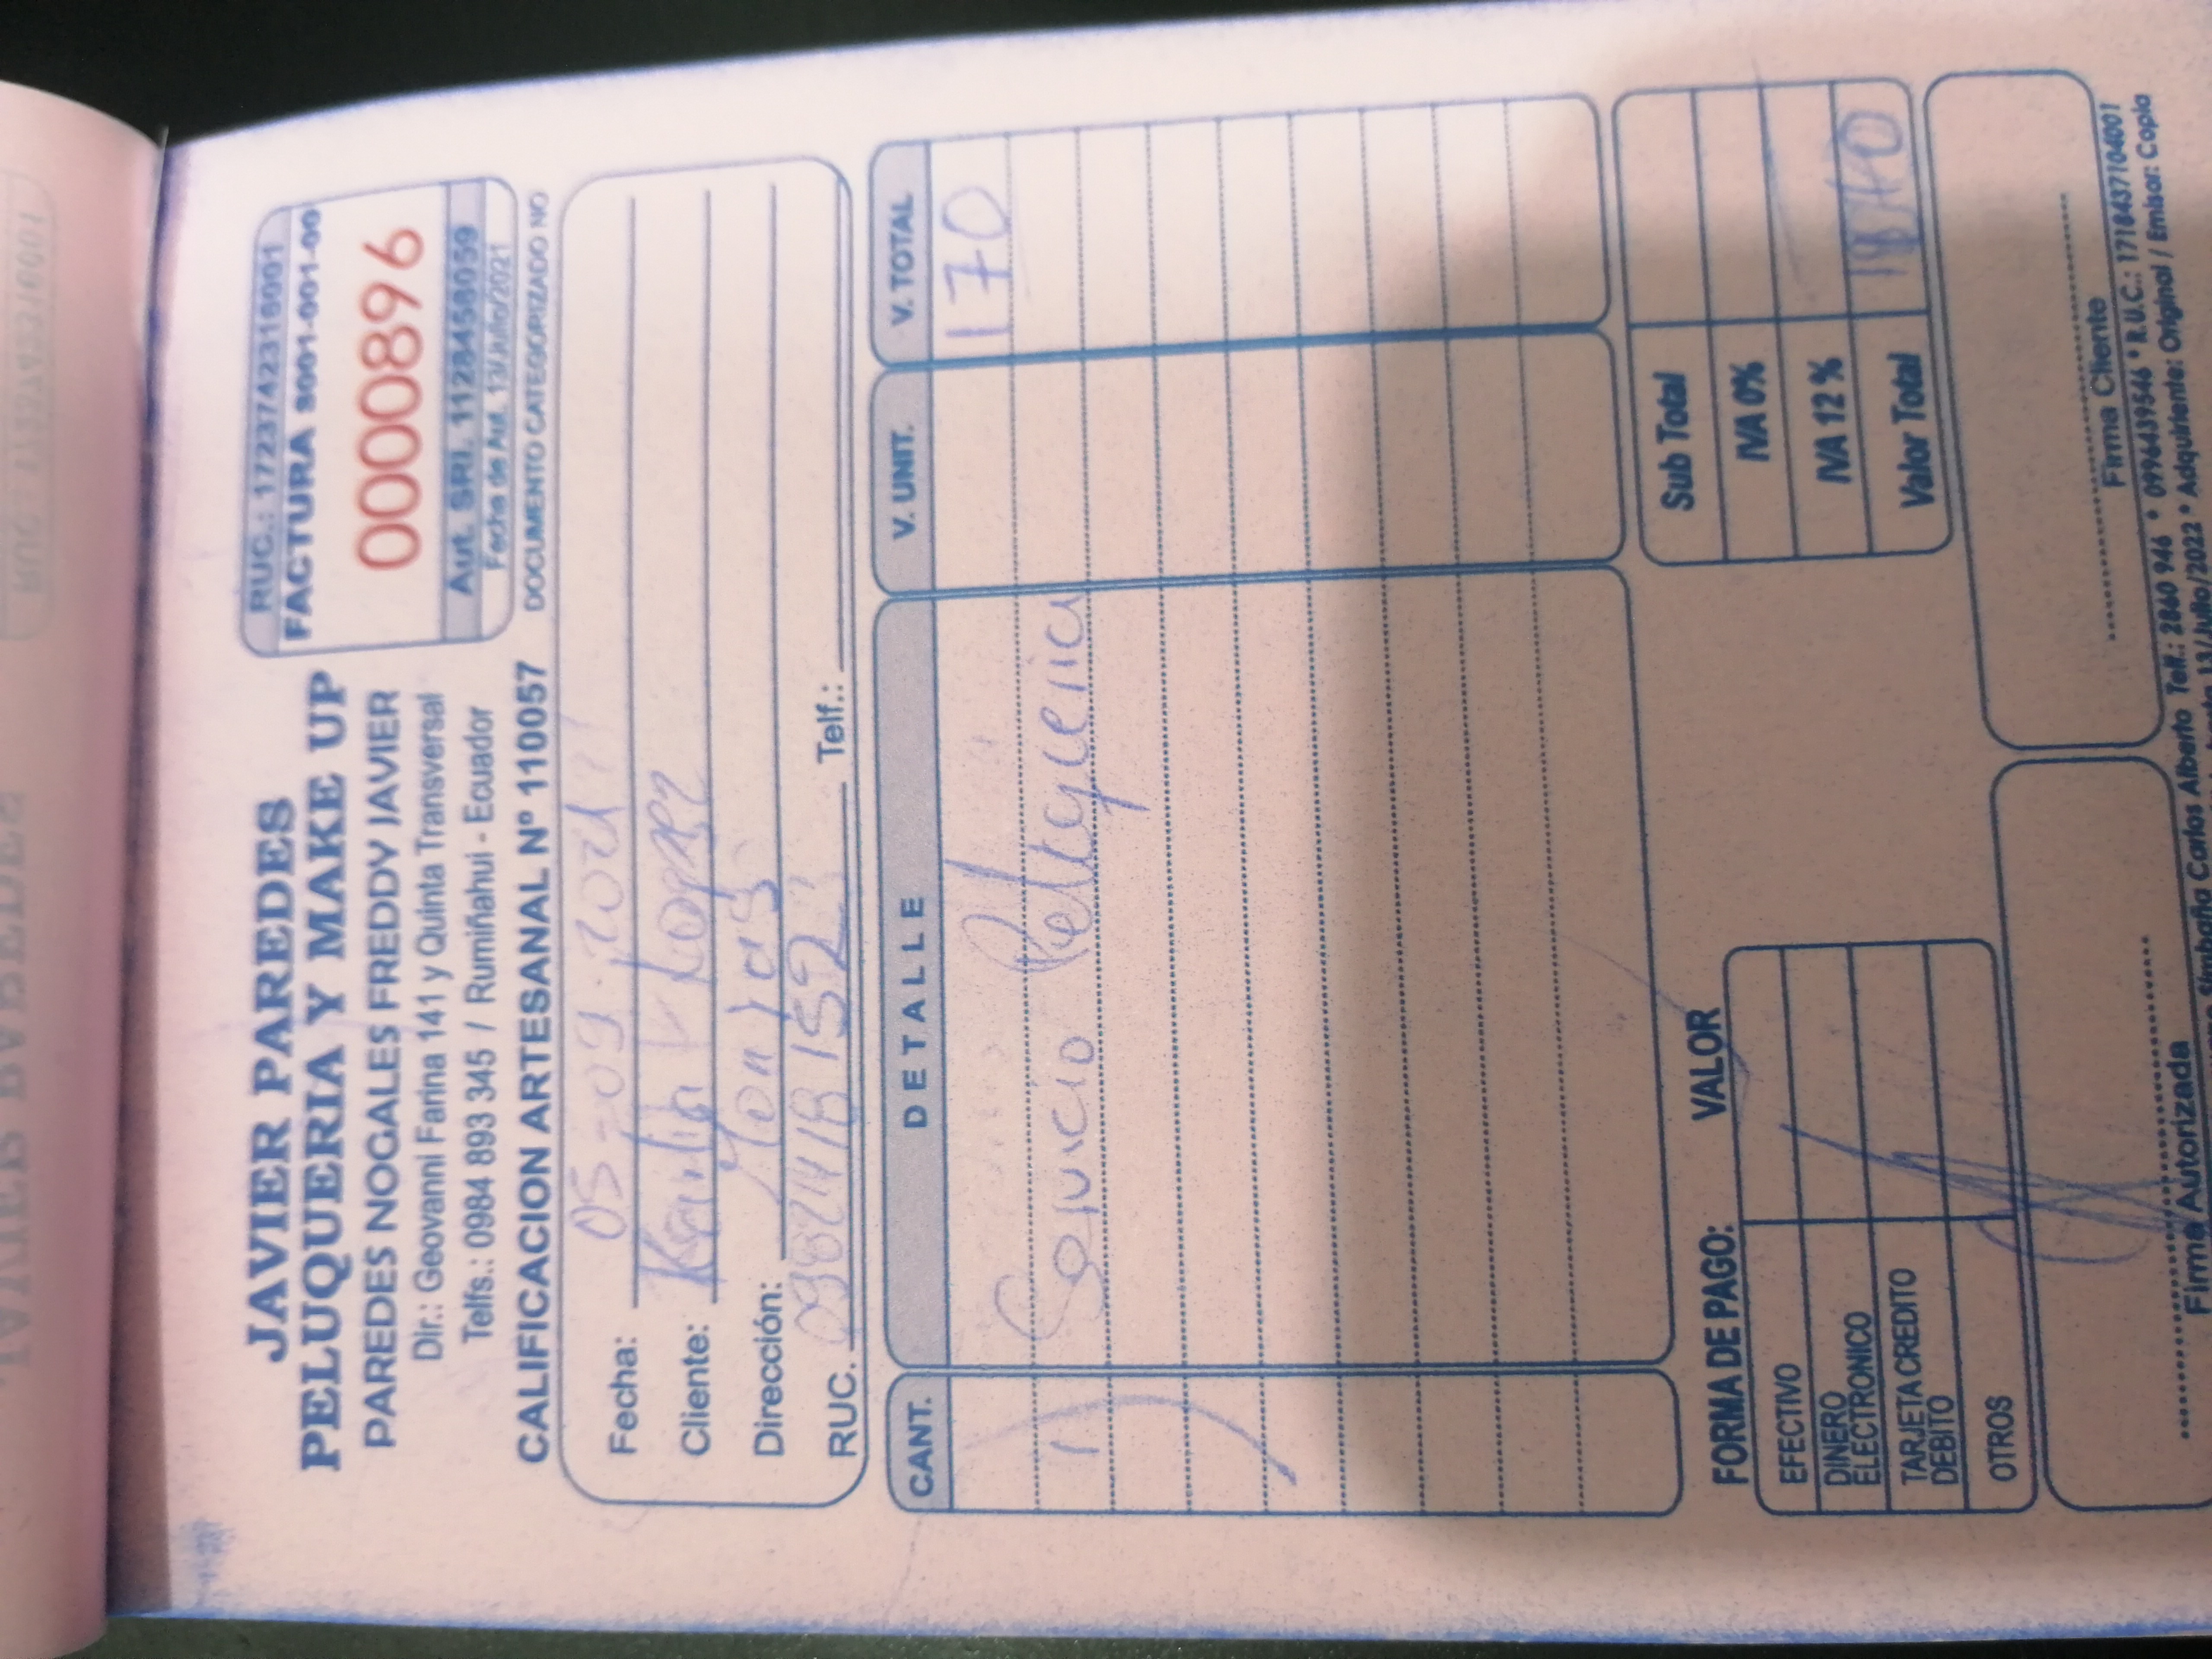 JAVIER PAREDES
PELUQUERIA Y MAKE UP
PAREDES NOGALES FREDDY JAVIER
Dir.: Geovanni Farina 141 y Quinta Transversal
Telfs.: 0984 893 345 / Rumiñahui - Ecuador
CALIFICACION ARTESANAL Nº 110057
RUC.: 1723742318001
FACTURA S001-001-00
0000896
Aut. SRI. 1128458059
Fecha de Aut. 13/Julio/2021
DOCUMENTO CATEGORIZADO NO
Fecha: 05-09-2021
Cliente: Lopez
Dirección:
RUC. Telf.:
CANT. DETALLE V. UNIT. V. TOTAL
1 Servicio Peluqueria 170
FORMA DE PAGO: VALOR
EFECTIVO
DINERO ELECTRONICO
TARJETA CREDITO DEBITO
OTROS
Sub Total
IVA 0%
IVA 12 %
Valor Total
Firma Autorizada
Firma Cliente
Carlos Alberto Telf.: 2860 946 * 0996439546 * R.U.C.: 1718437104001
13/Julio/2022 * Adquiriente: Original / Emisor: Copia